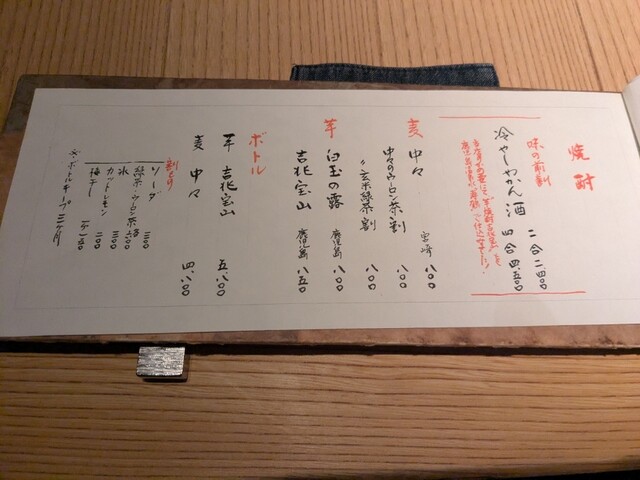 焼酎
味の前割
冷やしかん酒 二合 二、四〇〇
四合 四、五〇〇
麦 中々 宮崎 八〇〇
中々のウーロン茶割 八〇〇
〃 玄米緑茶割 八〇〇
芋 白玉の露 鹿児島 八〇〇
吉兆宝山 鹿児島 八五〇
ボトル
芋 吉兆宝山 五、八〇〇
麦 中々 四、八〇〇
割もの
ソーダ 三〇〇
緑茶・ウーロン茶 各六〇〇
氷 三〇〇
カットレモン 二〇〇
梅干し 一ケ 一五〇
※ボトルキープ 三ヶ月